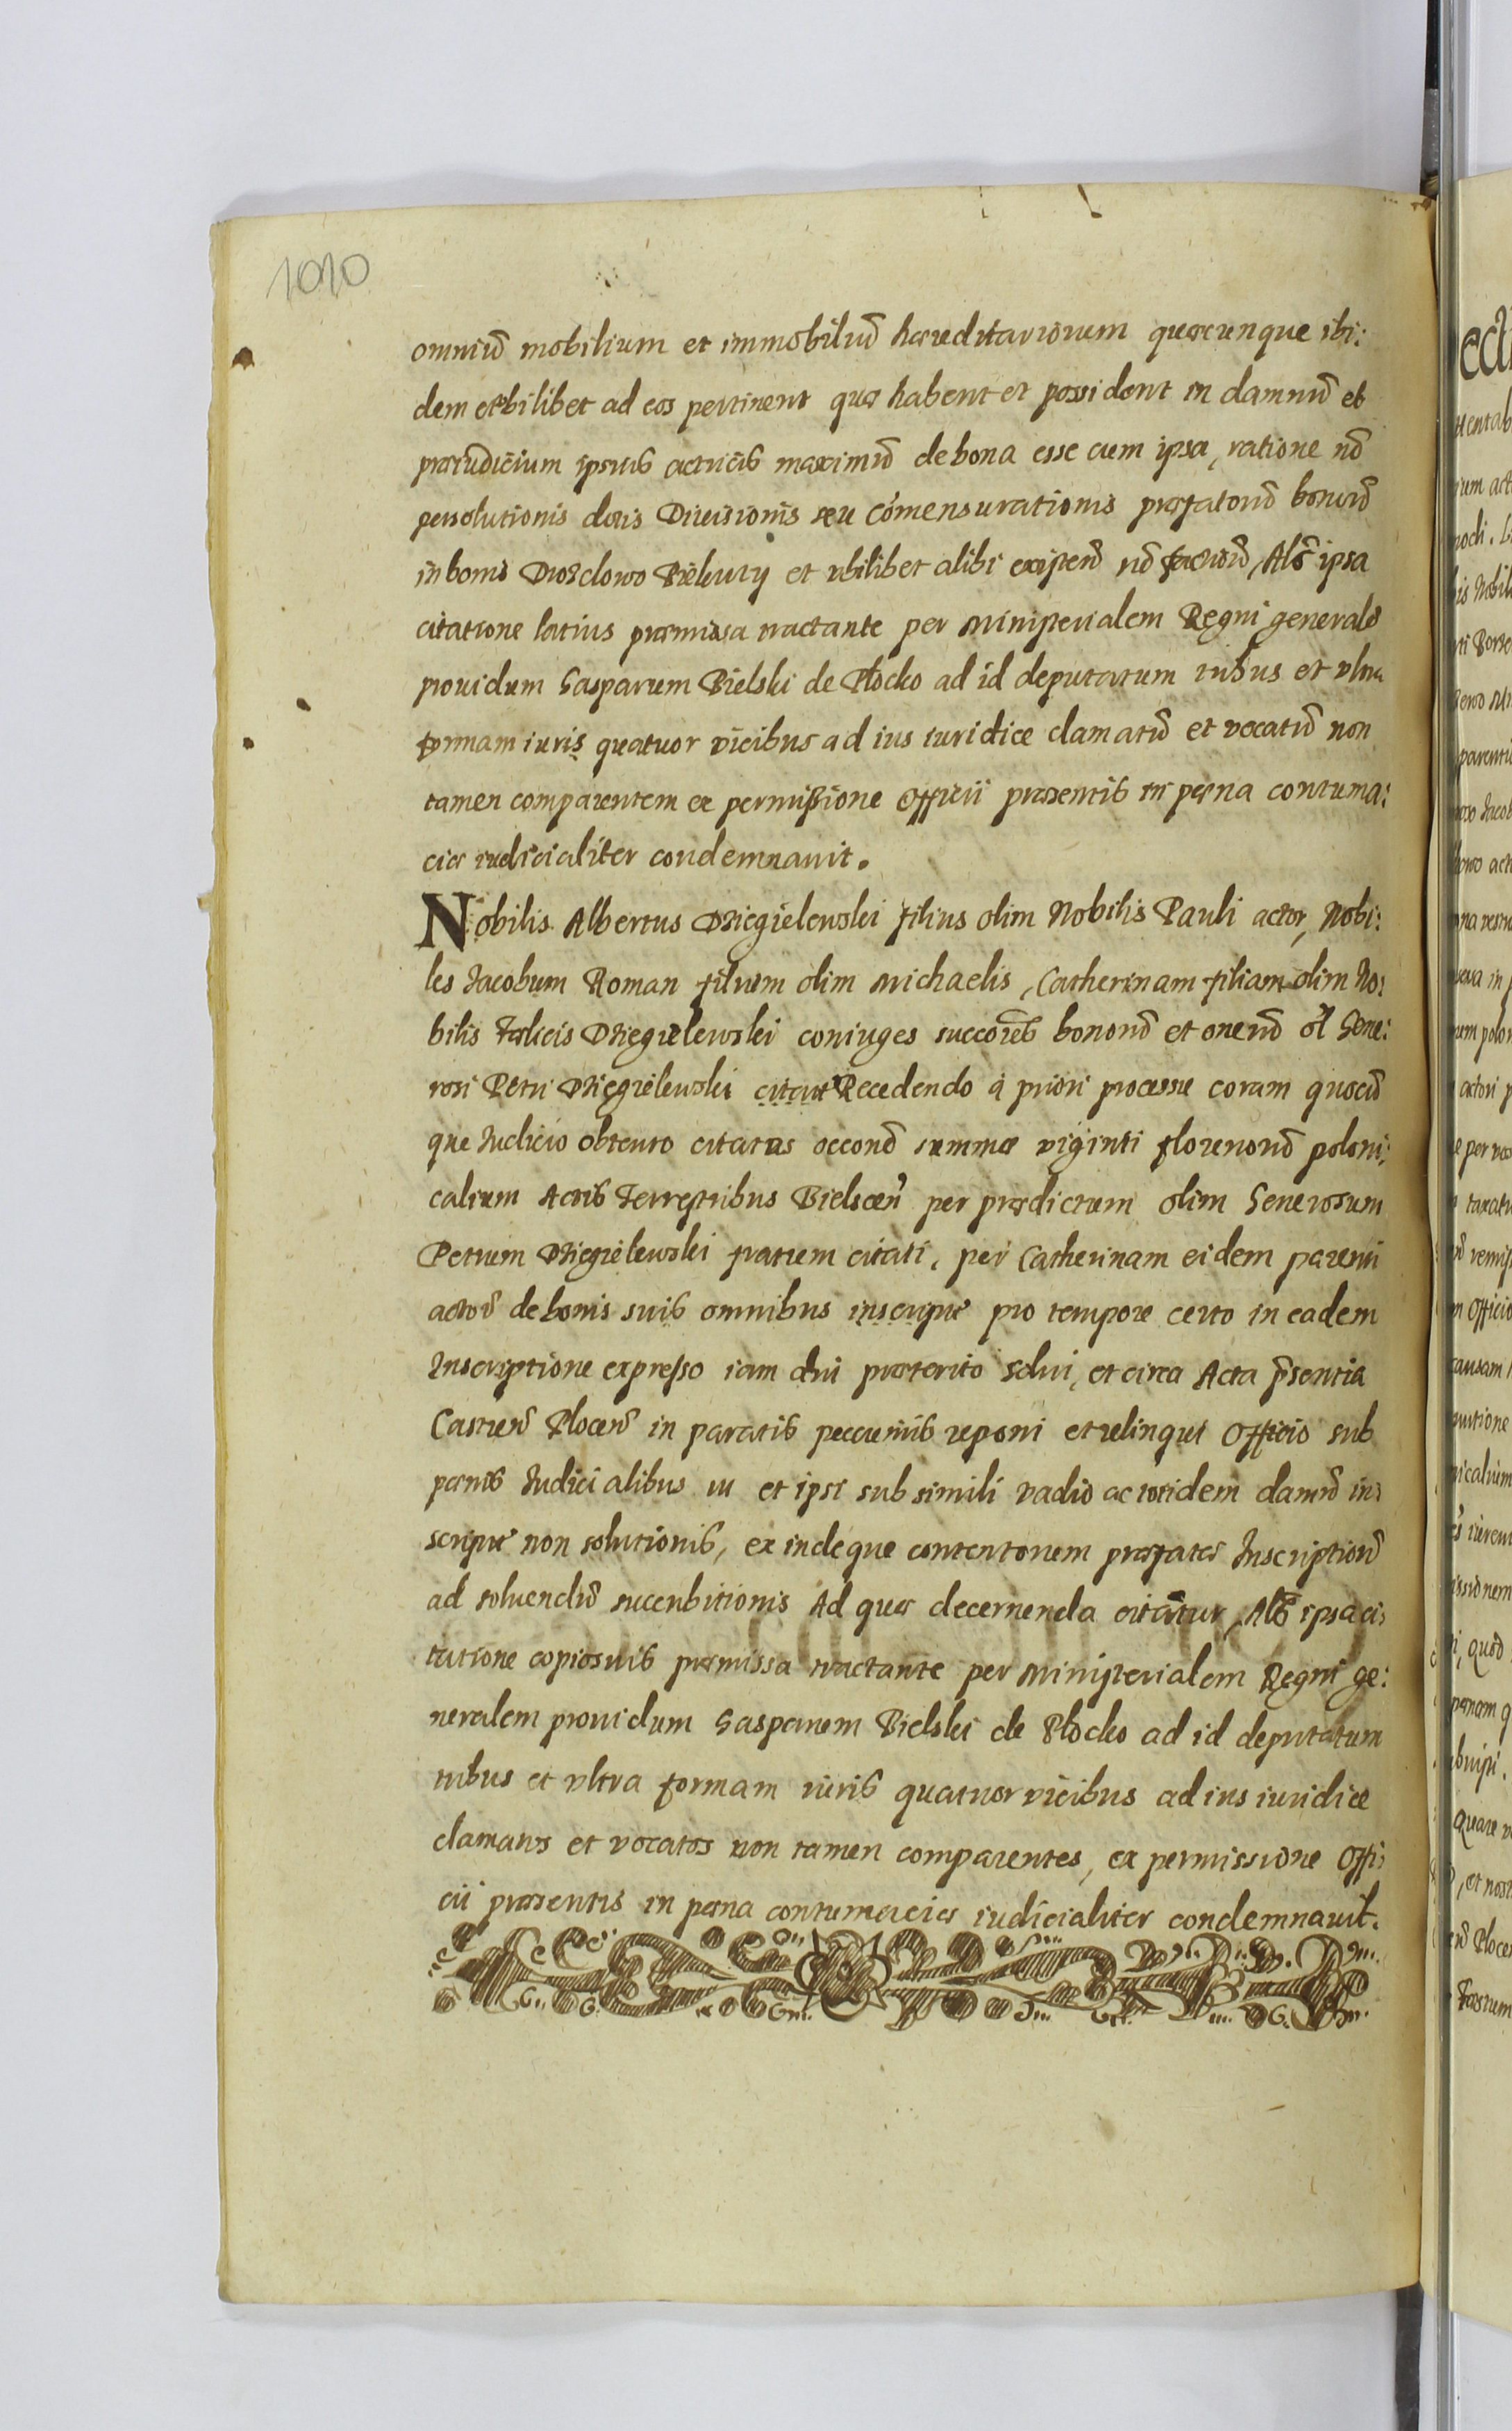 1010
omniũ mobilium et immobiliũ hæreditariorum quæcunque ibi:
dem et vbilibet ad eos pertinent quæ habent et possident in damnũ et
præiudicium ipsius actricis maximũ de bona esse cum ipsa, ratione nõ
persolutionis dotis Diuisionis seu cõmensurationis præfatorũ bonorũ
in bonis Drozdowo Bielewty et vbilibet alibi existeñ nõ factarũ, Alr̃ ipsa
citatione latius præmissa tractante per Ministerialem Regni generalẽ
prouidum Gasparum Bielski de Plocko ad id deputatum tribus et vltra
formam iuris quatuor vicibus ad ius iuridice clamatũ et vocatũ non
tamen comparentem ex permissione Officii præsentis in pæna contuma:
ciæ iudicialiter condemnauit.
Nobilis Albertus Dziegielewski filius olim Nobilis Pauli actor, Nobi:
les Jacobum Roman filium olim Michaelis, Catherinam filiam olim No:
bilis Fælicis Dziegielewski coniuges succores bonorũ et onerũ ol̃ Gene:
rosi Petri Dziegielewski citauit Recedendo à priori processu coram quocũ
que Iudicio obtento citatus occõne summæ viginti florenorũ poloni:
calium Actis Terrestribus Bielsceñ per prædictum olim Generosum
Petrum Dziegielewski fratrem citati, per Catherinam eidem parenti
actoris de bonis suis omnibus inscriptæ pro tempore certo in eadem
Inscriptione expresso iam diu præterito Solui, et circa Acta p̃sentia
Castreñ Ploceñ in paratis peccuniis reponi et relinqui Officio sub
pænis Iudicialibus iu et ipsi sub simili vadio ac totidem damñ in:
scriptæ non solutionis, exindeque contentorum præfatæ Inscriptionis
ad soluendũ succubitionis Ad quæ decernenda citãtur, Alr̃ ipsa ci:
tatione copiosius præmissa tractante per Ministerialem Regni ge:
neralem prouidum Gasparem Bielski de Plocko ad id deputatum
tribus et vltra formam iuris quatuor vicibus ad ius iuridice
clamatos et vocatos non tamen comparentes, ex permissione Offi:
cii præsentis in pæna contumaciæ iudicialiter condemnauit.